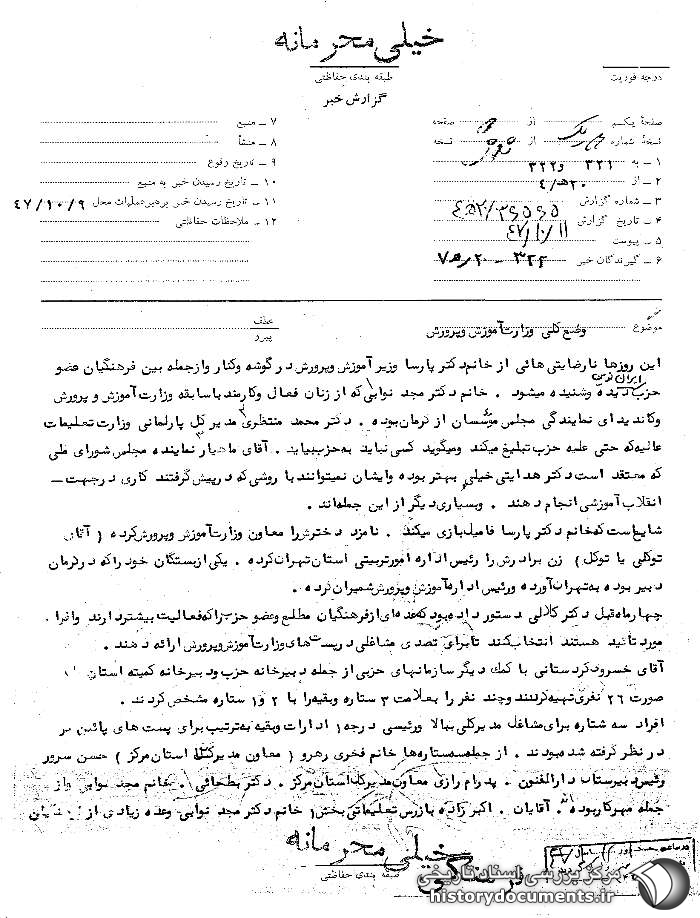 خیلی محرمانه
طبقه بندی حفاظتی
درجه فوریت
گزارش خبر
صفحهٔ یکم از صفحه
نسخهٔ شماره یک از نسخه
۱ ـ به ۳۲۱ و ۳۲۲
۲ ـ از ۲۰ ه‍ ۴
۳ ـ شماره گزارش
۴ ـ تاریخ گزارش ۴۷/۱۰/۱۱
۵ ـ پیوست
۶ ـ گیرندگان خبر ۳۲۲ ـ
۷ ـ منبع
۸ ـ منشأ
۹ ـ تاریخ وقوع
۱۰ ـ تاریخ رسیدن خبر به منبع
۱۱ ـ تاریخ رسیدن خبر برهبر عملیات محل ۴۷/۱۰/۹
۱۲ ـ ملاحظات حفاظتی
موضوع وضع کلی وزارت آموزش و پرورش
عطف
پیرو
این روزها نارضایتی هائی از خانم دکتر پارسا وزیر آموزش و پرورش در گوشه و کنار و از جمله بین فرهنگیان عضو
حزب ایران نوین دیده و شنیده میشود . خانم دکتر مجد نوابی که از زنان فعال و کارمند با سابقه وزارت آموزش و پرورش
و کاندیدای نمایندگی مجلس مؤسسان از کرمان بوده . دکتر محمد منتظری مدیر کل پارلمانی وزارت تعلیمات
عالیه که حتی علیه حزب تبلیغ میکند و میگوید کسی نباید به حزب بیاید . آقای ماهیار نماینده مجلس شورای ملی
که معتقد است دکتر هدایتی خیلی بهتر بوده و ایشان نمیتوانند با روشی که در پیش گرفتند کاری در جهت ـ
انقلاب آموزشی انجام دهند . و بسیاری دیگر از این جمله اند .
شایع است که خانم دکتر پارسا فامیل بازی میکند . نامزد دخترش را معاون وزارت آموزش و پرورش کرده ( آقای
توکلی یا توکل ) زن برادرش را رئیس اداره امور تربیتی استان تهران کرده . یکی از بستگان خود را که در کرمان
دبیر بوده به تهران آورده و رئیس اداره آموزش و پرورش شمیران کرده .
چهار ماه قبل دکتر کلالی دستور داده بود که عده ای از فرهنگیان مطلع و عضو حزب را که فعالیت بیشتر دارند و افراد
مورد تأئید هستند انتخاب کنند تا برای تصدی مشاغلی در پست های وزارت آموزش و پرورش ارائه دهند .
آقای خسرو کردستانی با کمک دیگر سازمانهای حزبی از جمله دبیرخانه حزب و دبیرخانه کمیته استان
صورت ۲۶ نفری تهیه کردند و چند نفر را بعلامت ۳ ستاره و بقیه را با ۲ و ۱ ستاره مشخص کردند .
افراد سه ستاره برای مشاغل مدیر کلی ببالا و رئیسی درجه ۱ ادارات و بقیه به ترتیب برای پست های پائین تر
در نظر گرفته شده بودند . از جمله سه ستاره ها خانم فخری رهرو ( معاون مدیر کل استان مرکز ) حسن سرور
رئیس دبیرستان دارالفنون . پدرام رازی معاون مدیر کل استان مرکز . دکتر بطحائی . خانم مجد نوابی و از
جمله مهرکار بوده اند . آقایان . اکبرزاده بازرس تعلیماتی بخش ۱ خانم دکتر مجد نوابی و عده زیادی از
خیلی محرمانه
طبقه بندی حفاظتی
مرکز بررسی اسناد تاریخی
historydocuments.ir